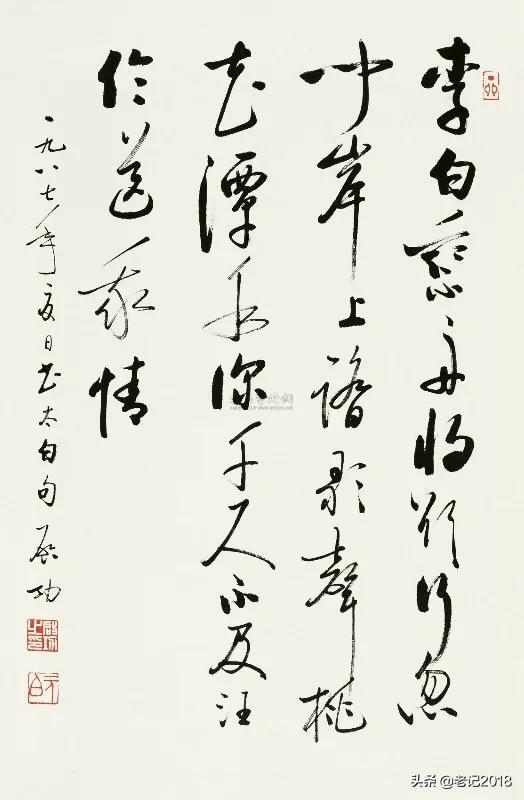 李白乘舟将欲行忽
闻岸上踏歌聲桃
花潭水深千尺不及汪
倫送我情
一九八七年夏日书太白句 启功
元白
头条 @老记2018